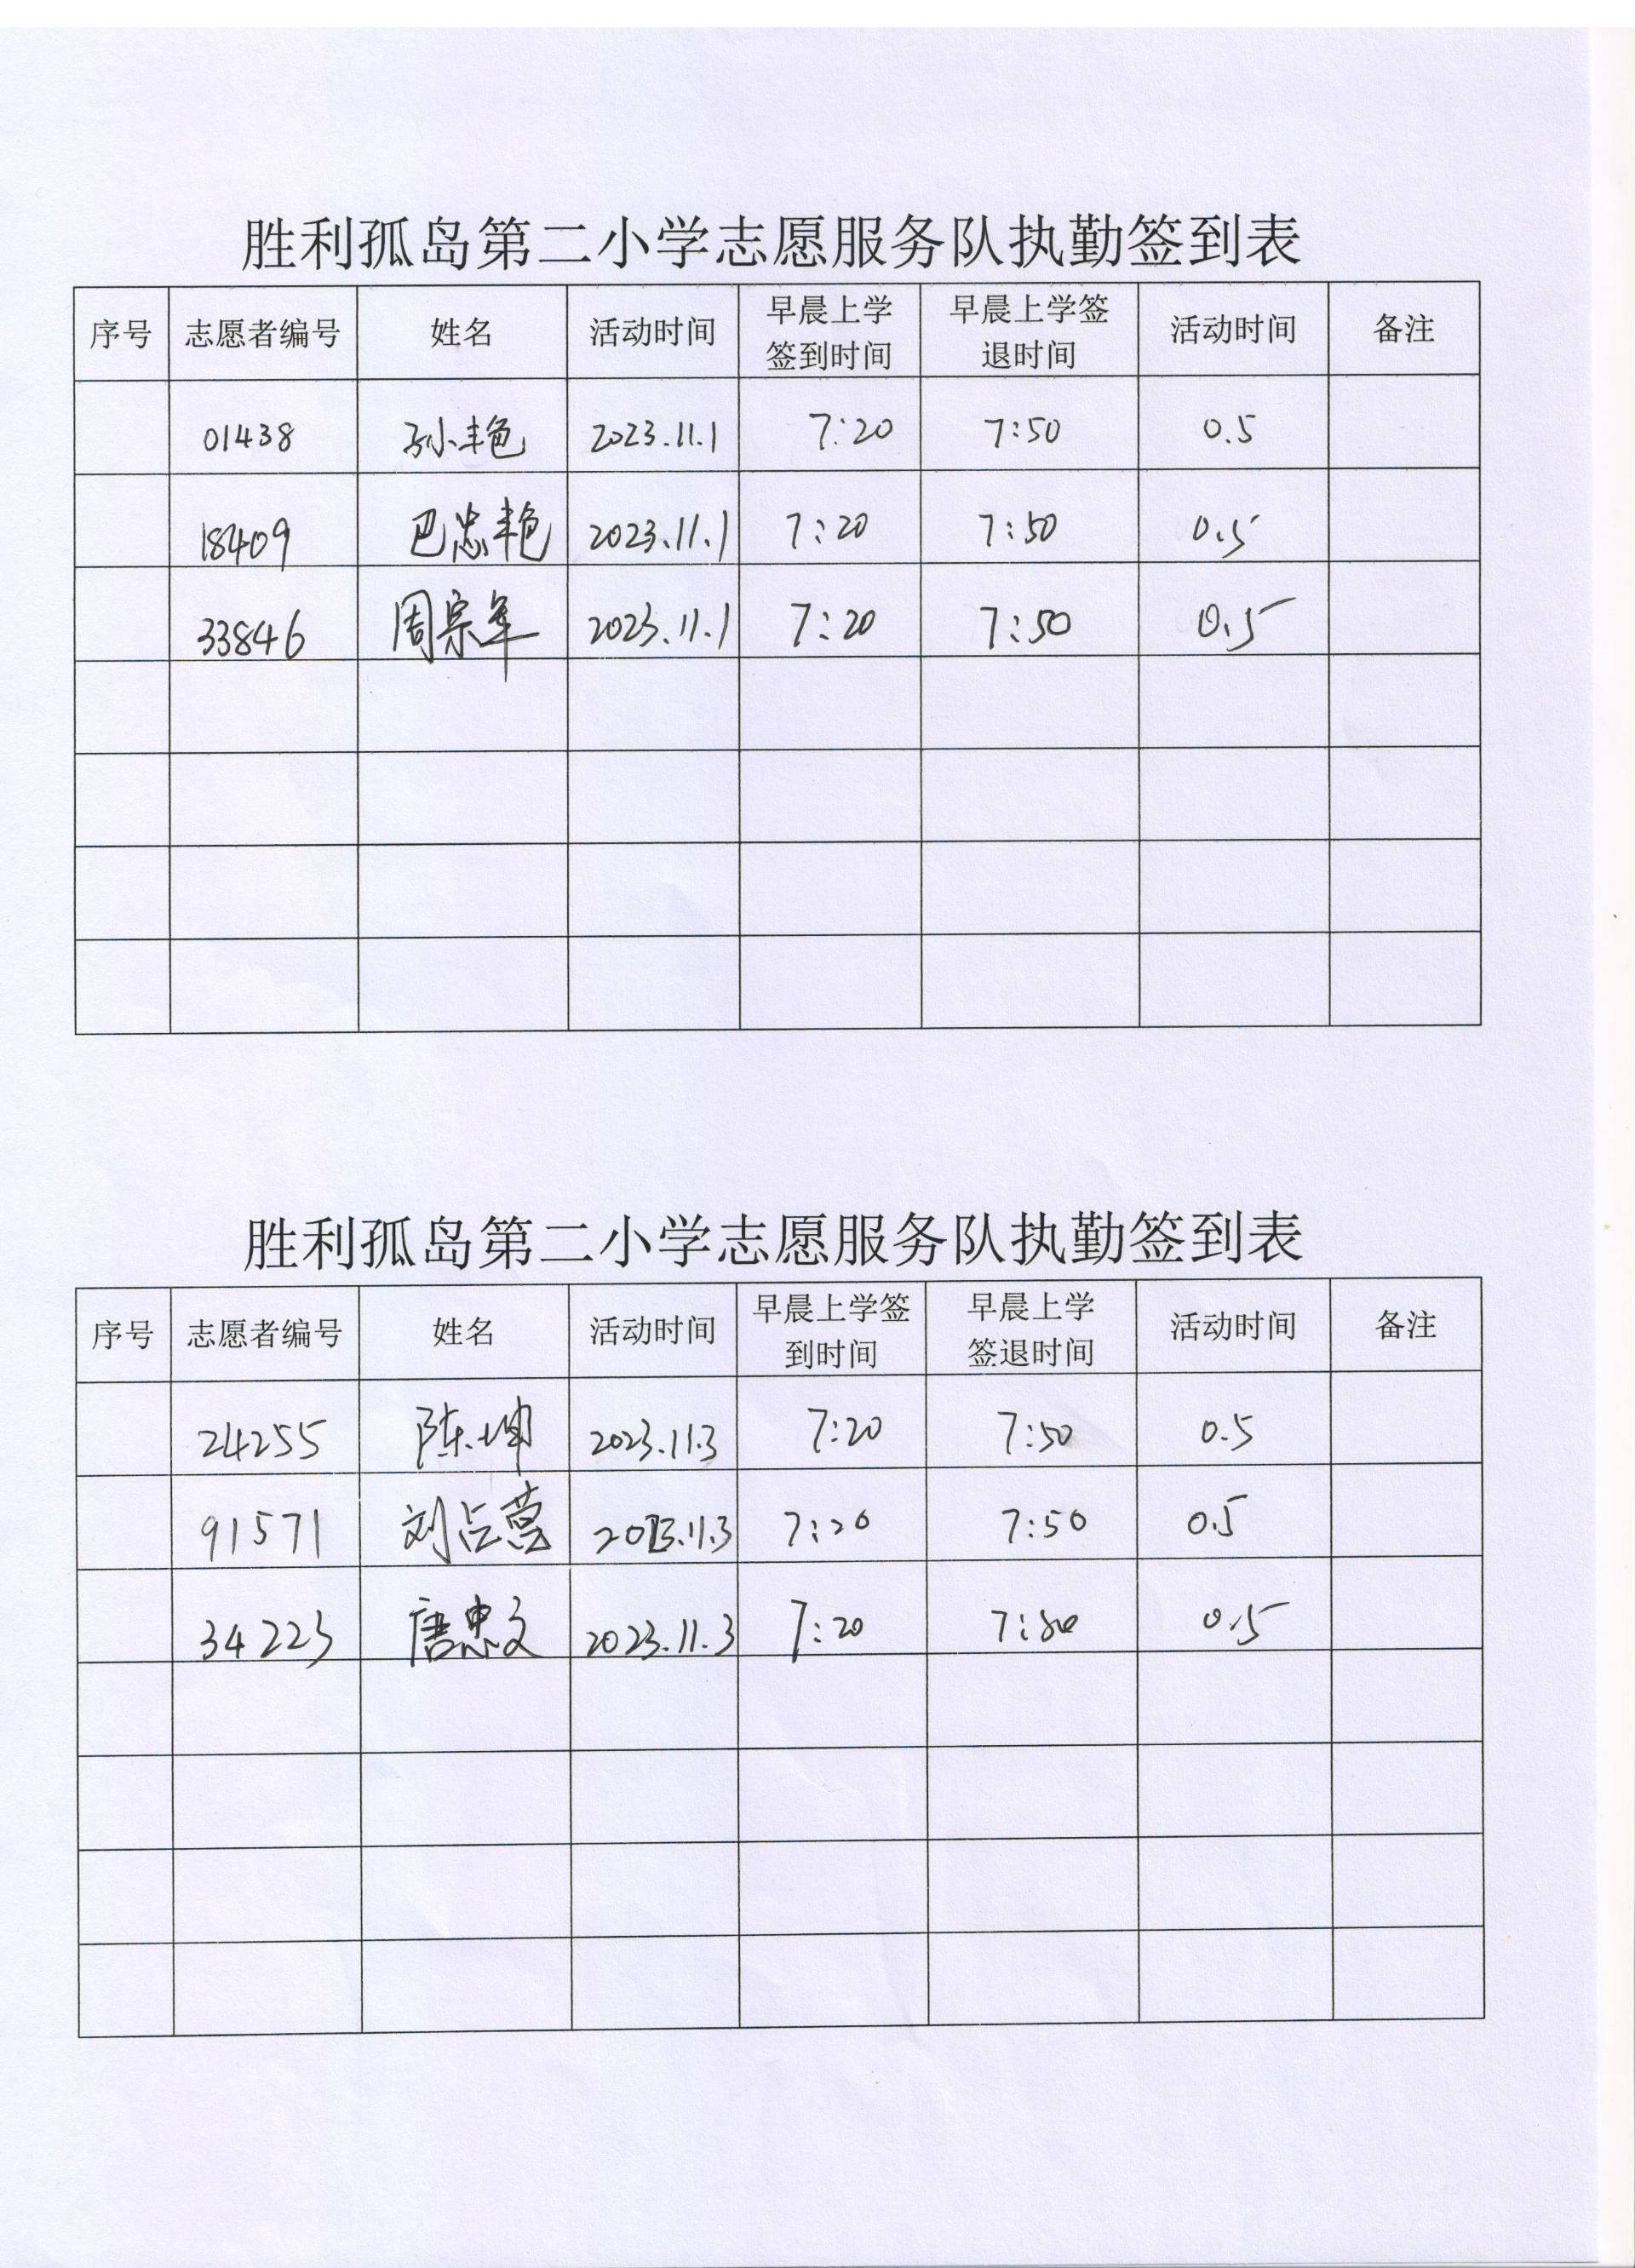 胜利孤岛第二小学志愿服务队执勤签到表
序号 志愿者编号 姓名 活动时间 早晨上学签到时间 早晨上学签退时间 活动时间 备注
01438 孙丰艳 2023.11.1 7:20 7:50 0.5
18409 巴忠艳 2023.11.1 7:20 7:50 0.5
33846 周宗军 2023.11.1 7:20 7:50 0.5
胜利孤岛第二小学志愿服务队执勤签到表
序号 志愿者编号 姓名 活动时间 早晨上学签到时间 早晨上学签退时间 活动时间 备注
24255 陈坤 2023.11.3 7:20 7:50 0.5
91571 刘占营 2023.11.3 7:20 7:50 0.5
34223 唐忠文 2023.11.3 7:20 7:50 0.5